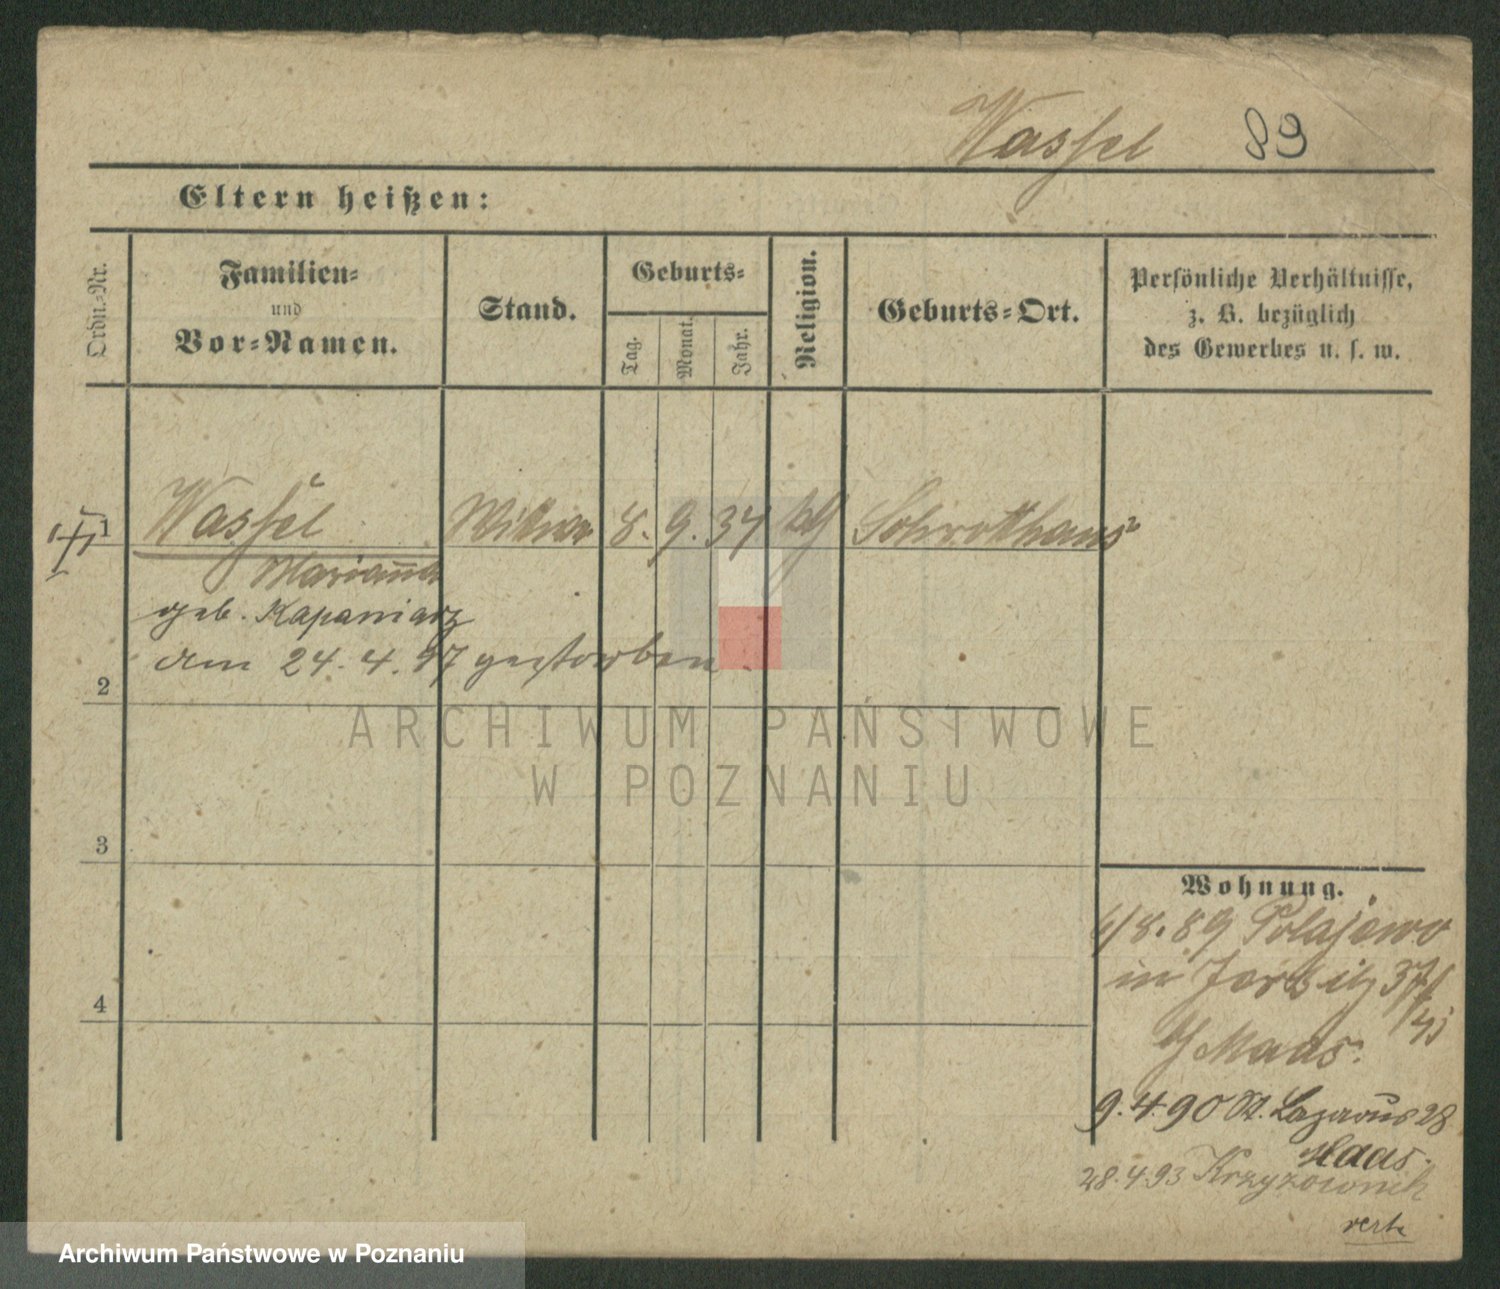 Wassel 89
Eltern heißen:
Ordn.-Nr.
Familien-
und
Vor-Namen.
Stand.
Geburts-
Tag.
Monat.
Jahr.
Religion.
Geburts-Ort.
Persönliche Verhältnisse,
z. B. bezüglich
des Gewerbes u. s. w.
1 Wassel Wittwe 8. 9. 34 Schrotthaus
Marianna
geb. Kapaniarz
am 24. 4. 97 gestorben.
2
3
4
Wohnung.
6/8. 89 Polajewo
in Jersitz 37/
b/ Maas.
9. 4. 90 St. Lazarus 28
Haas.
28. 4. 93 Krzyzownik
ARCHIWUM PAŃSTWOWE
W POZNANIU
Archiwum Państwowe w Poznaniu